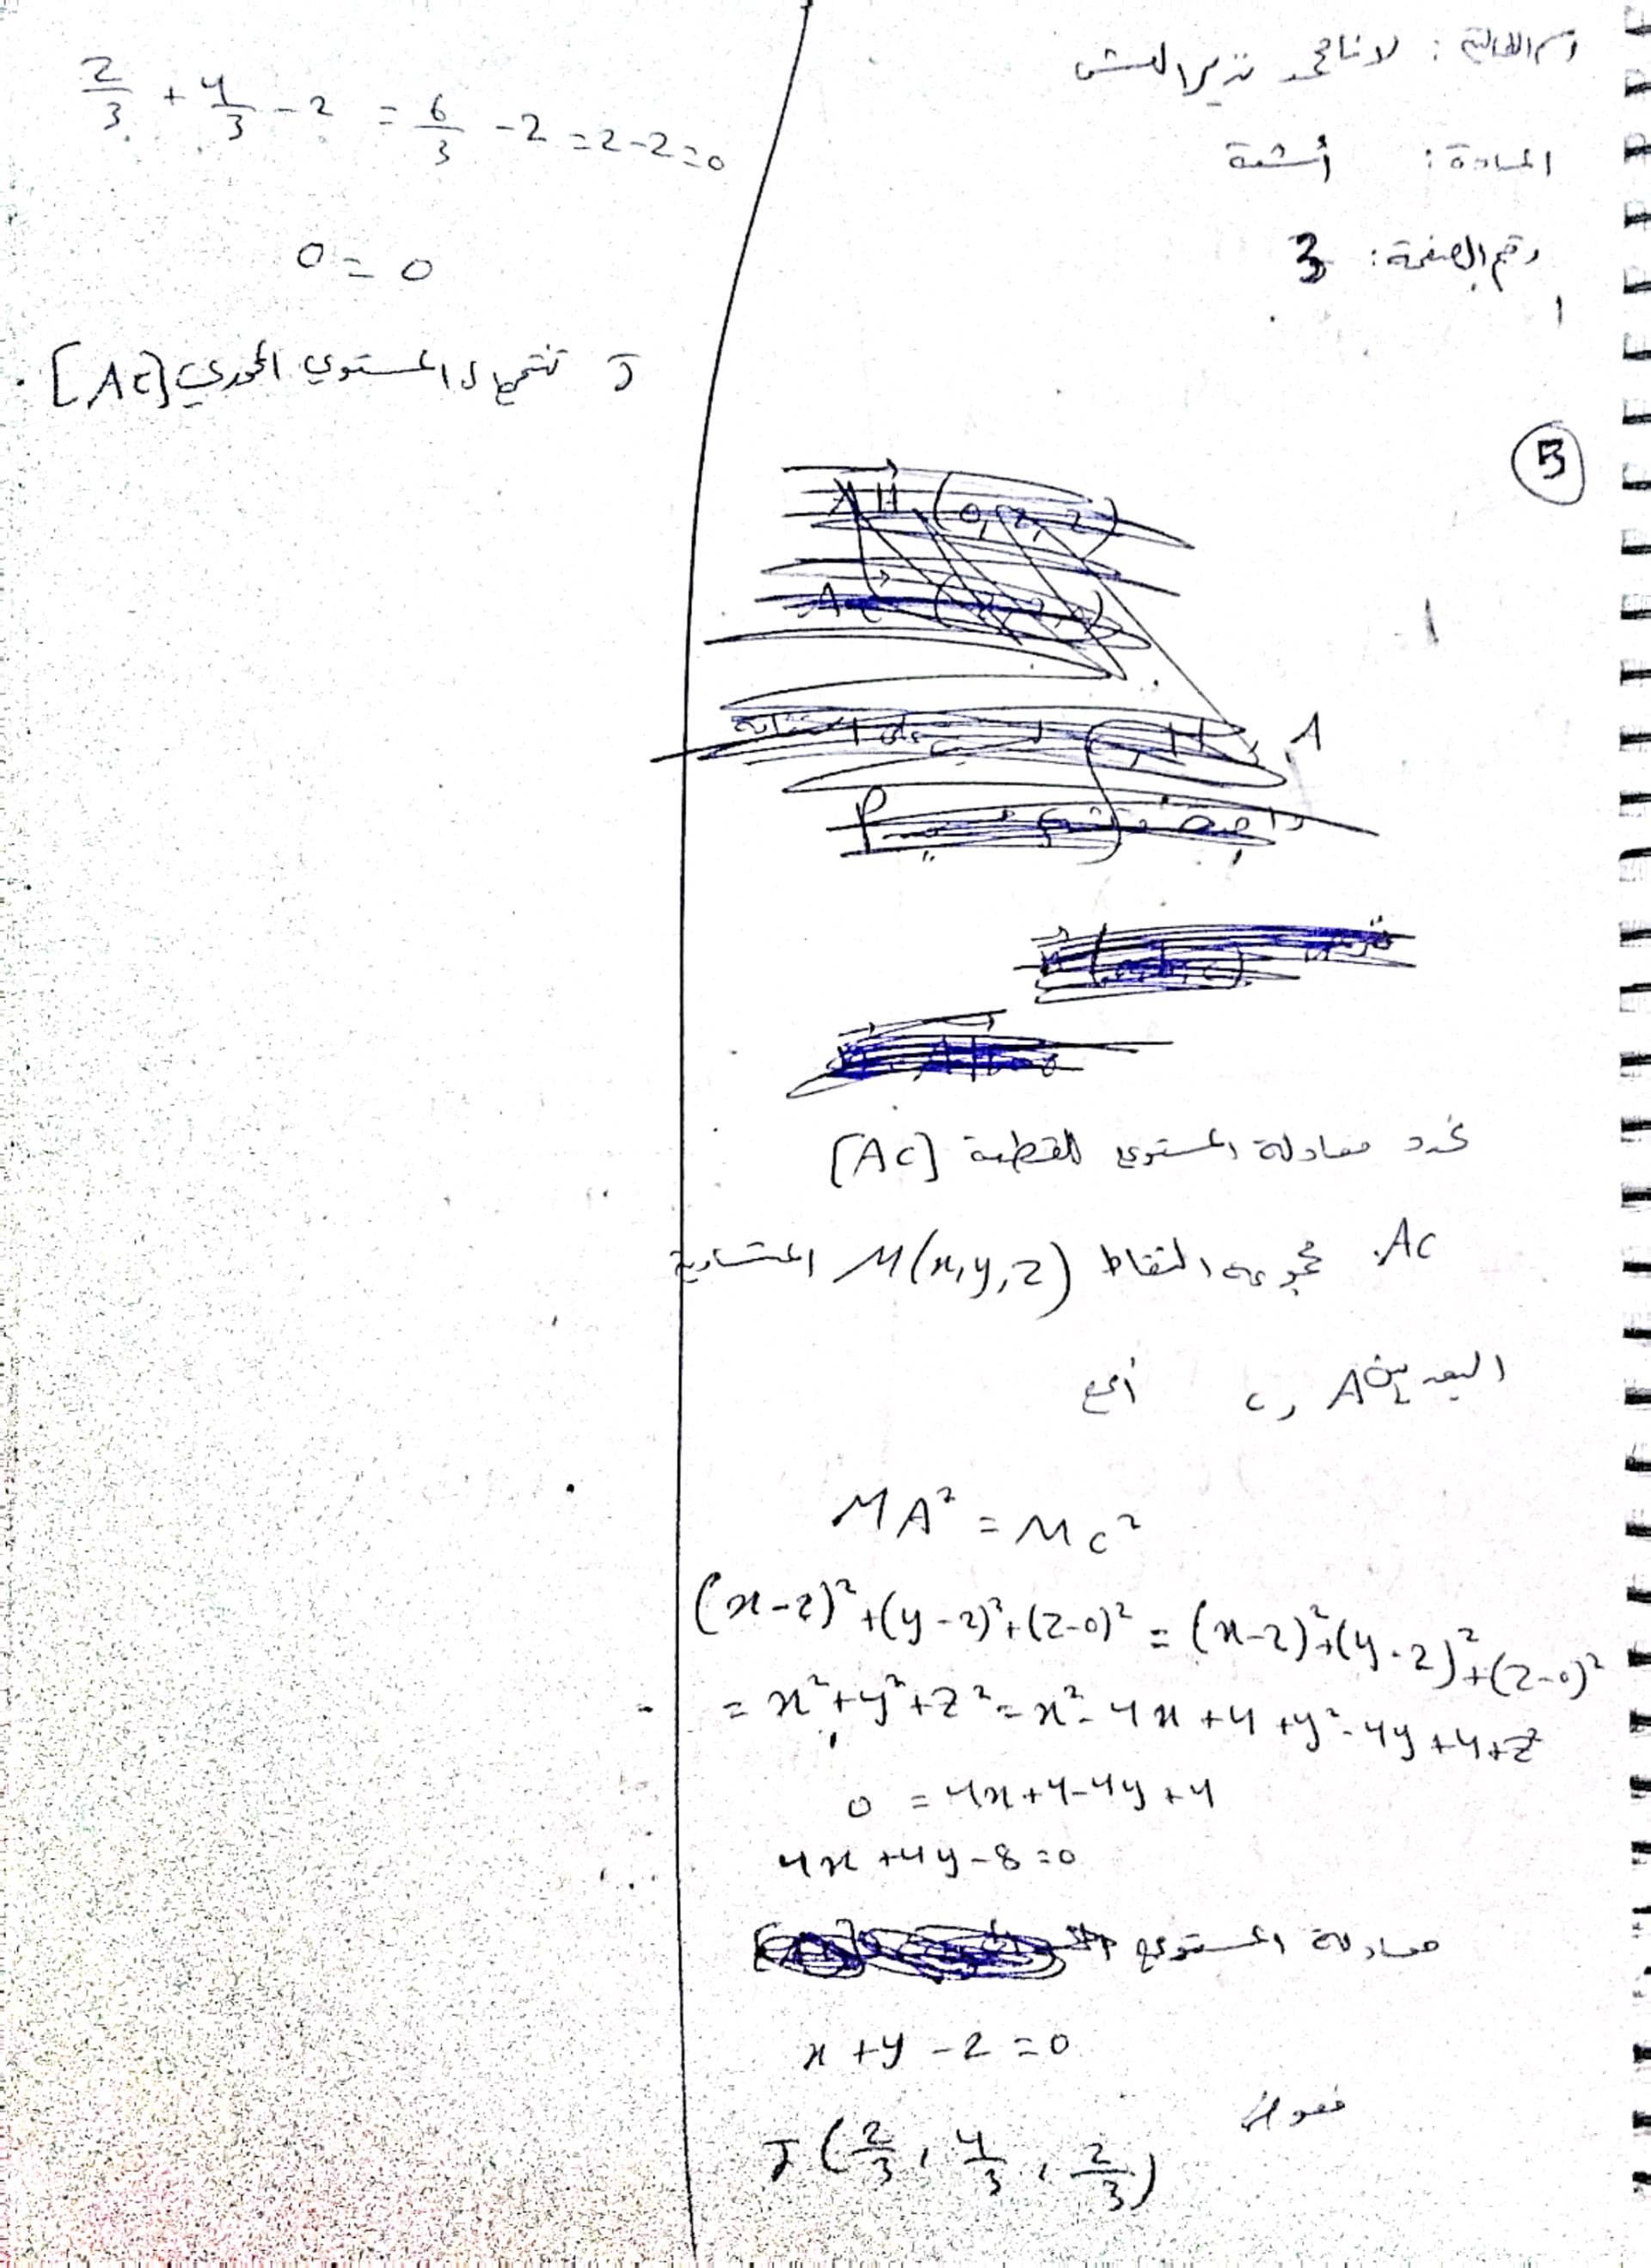 اسم الطالبة: لانا محمد نذير
المادة: أشعة
رقم الصفحة: 3
5
نحدد معادلة المستوي للقطعة [AC]
AC. مجموعة النقاط M(x,y,z) المتساوية
البعد بين A و C أي
MA² = MC²
(x-2)²+(y-2)²+(z-0)² = (x-2)²+(y-2)²+(z-0)²
= x²+y²+z² = x²-4x+4+y²-4y+4+z²
0 = 4x+4-4y+4
4x+4y-8=0
معادلة المستوي
x+y-2=0
نعوض
J(2/3, 4/3, 2/3)
2/3 + 4/3 - 2 = 6/3 - 2 = 2-2=0
0=0
J تنتمي الى المستوي المحوري [AC].